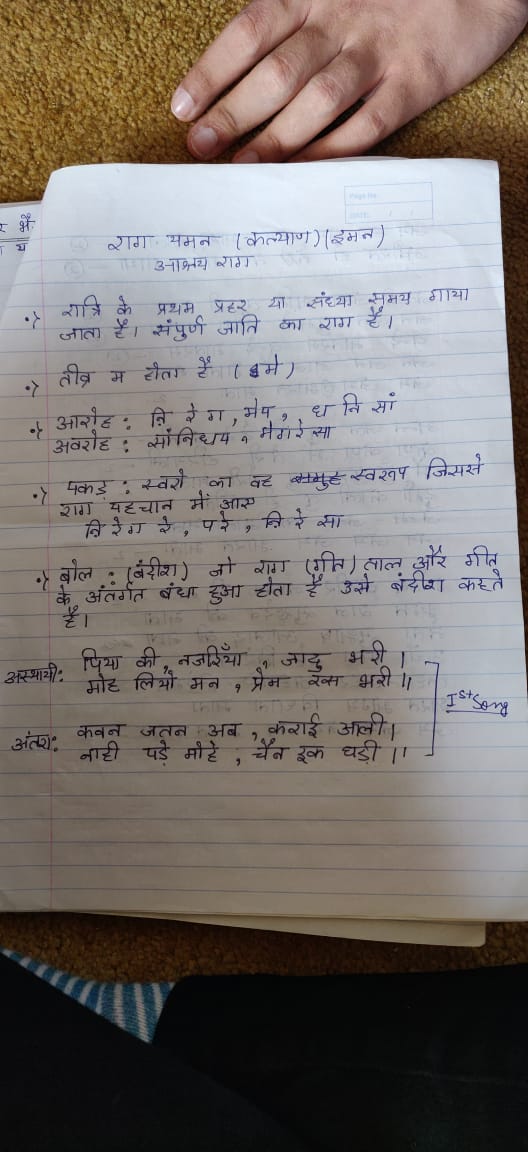 Page No.
DATE: / /
र भै
य
राग यमन (कल्याण) (इमन)
आश्रय राग
रात्रि के प्रथम प्रहर या संध्या समय गाया
जाता है। संपुर्ण जाति का राग है।
तीव्र म होता है (मे)
आरोह : नि रे ग, मेप, , ध नि सां
अवरोह : सांनिधप, मेगरेसा
पकड़ : स्वरो का वह समुह स्वरुप जिससे
राग पहचान में आए
नि रे ग रे, प रे, नि रे सा
बोल : (बंदीश) जो राग (गीत) ताल और गीत
के अंतर्गत बंधा हुआ होता है उसे बंदीश कहते
है।
अस्थायी: पिया की, नजरियाँ, जादु भरी।
मोह लियो मन, प्रेम रस भरी॥
Ist Song
अंतरा: कवन जतन अब, कराई आली।
नाही पड़े मोहे, चैन इक घड़ी॥